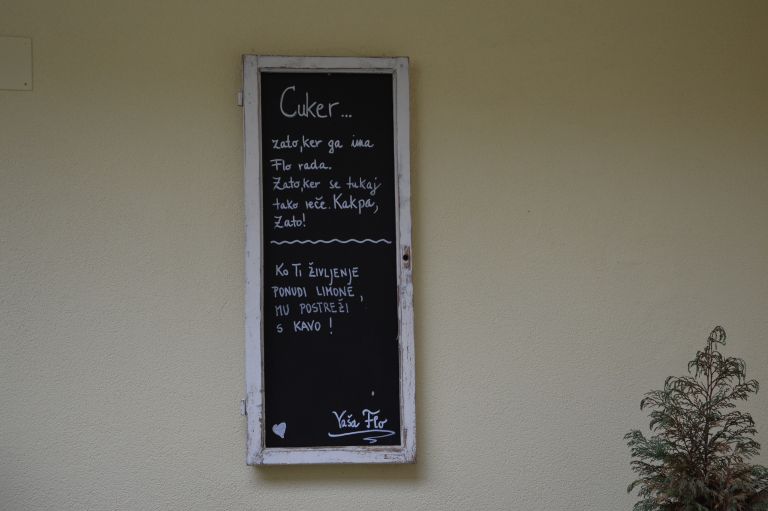 Cuker...
zato, ker ga ima
Flo rada.
Zato, ker se tukaj
tako reče. Kakpa,
Zato!
KO TI ŽIVLJENJE
PONUDI LIMONE,
MU POSTREŽI
S KAVO!
Vaša Flo